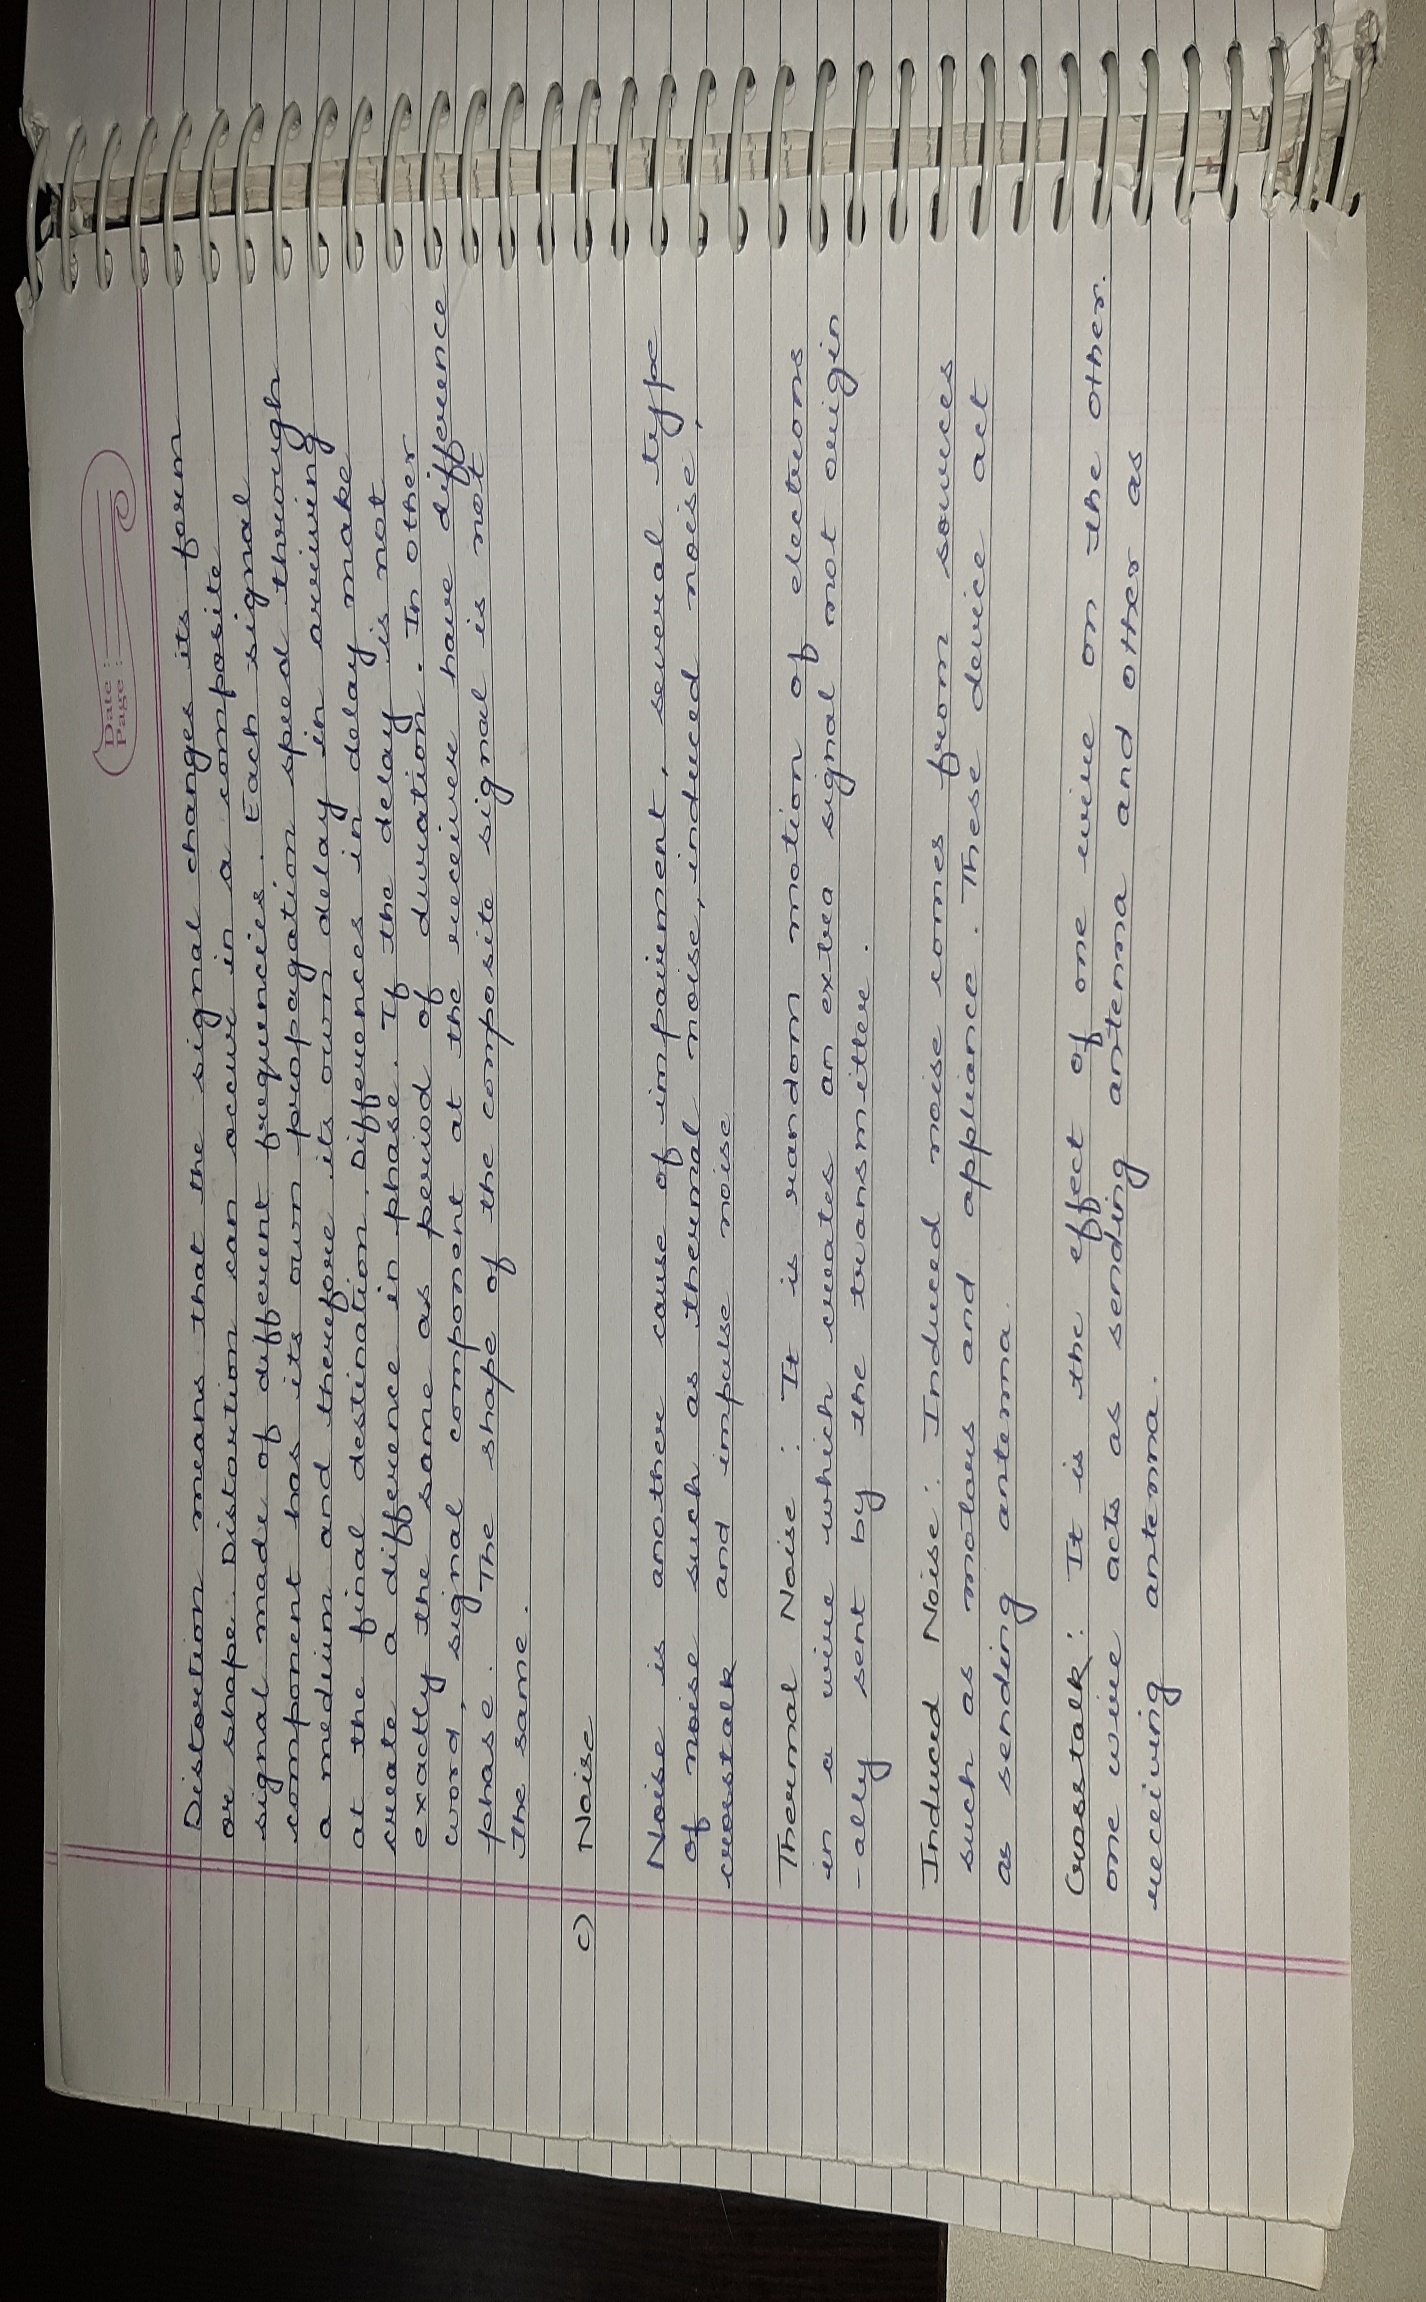 Date :
Page :
Distortion means that the signal changes its form
or shape. Distortion can occur in a composite
signal made of different frequencies. Each signal
component has its own propagation speed through
a medium and therefore its own delay in arriving
at the final destination. Differences in delay make
create a difference in phase. If the delay is not
exactly the same as period of duration. In other
word, signal component at the receiver have difference
phase. The shape of the composite signal is not
the same.
c) Noise
Noise is another cause of impairment, several type
of noise such as thermal noise, induced noise,
crosstalk and impulse noise
Thermal Noise : It is random motion of electrons
in a wire which creates an extra signal not origin
-ally sent by the transmitter.
Induced Noise : Induced noise comes from sources
such as motors and appliance. These device act
as sending antenna.
Crosstalk : It is the effect of one wire on the other.
one wire acts as sending antenna and other as
receiving antenna.